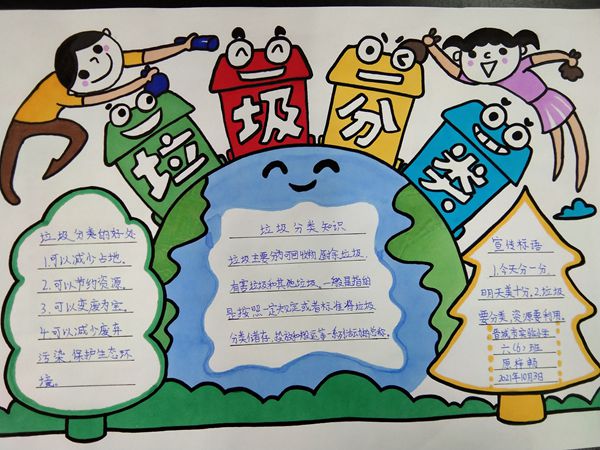 垃
圾
分
类
垃圾分类的好处
1.可以减少占地.
2.可以节约资源.
3.可以变废为宝.
4.可以减少废弃
污染,保护生态环
境。
垃圾分类知识
垃圾主要分为可回收物,厨余垃圾,
有害垃圾和其他垃圾,一般是指
按照一定规定或者标准将垃圾
分类储存,投放和搬运等一系列活动的总称。
宣传标语
1.今天分一分,
明天美十分,2.垃圾
要分类,资源要利用。
晋城市实验小学
六(6)班
原梓畅
2021年10月3日